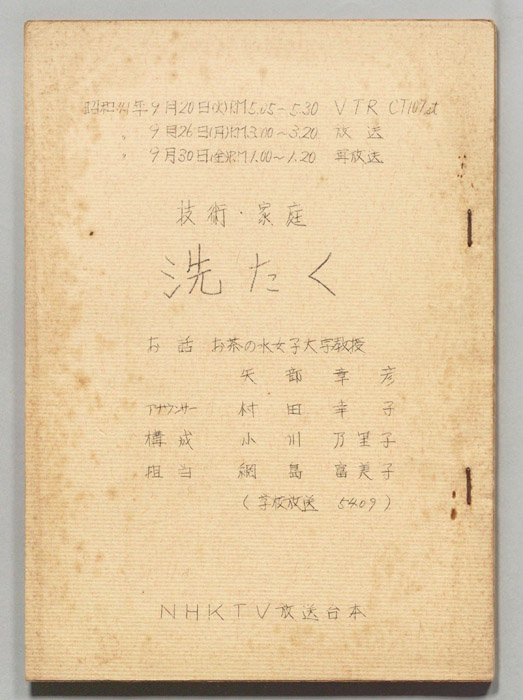 昭和41年9月20日(火)P.M5.05~5.30 VTR CT107st
〃 9月26日(月)P.M3.00~3.20 放送
〃 9月30日(金)P.M1.00~1.20 再放送
技術・家庭
洗たく
お話 お茶の水女子大学教授
矢部章彦
アナウンサー 村田幸子
構成 小川万里子
担当 綱島富美子
(学校放送 5409)
NHKTV放送台本